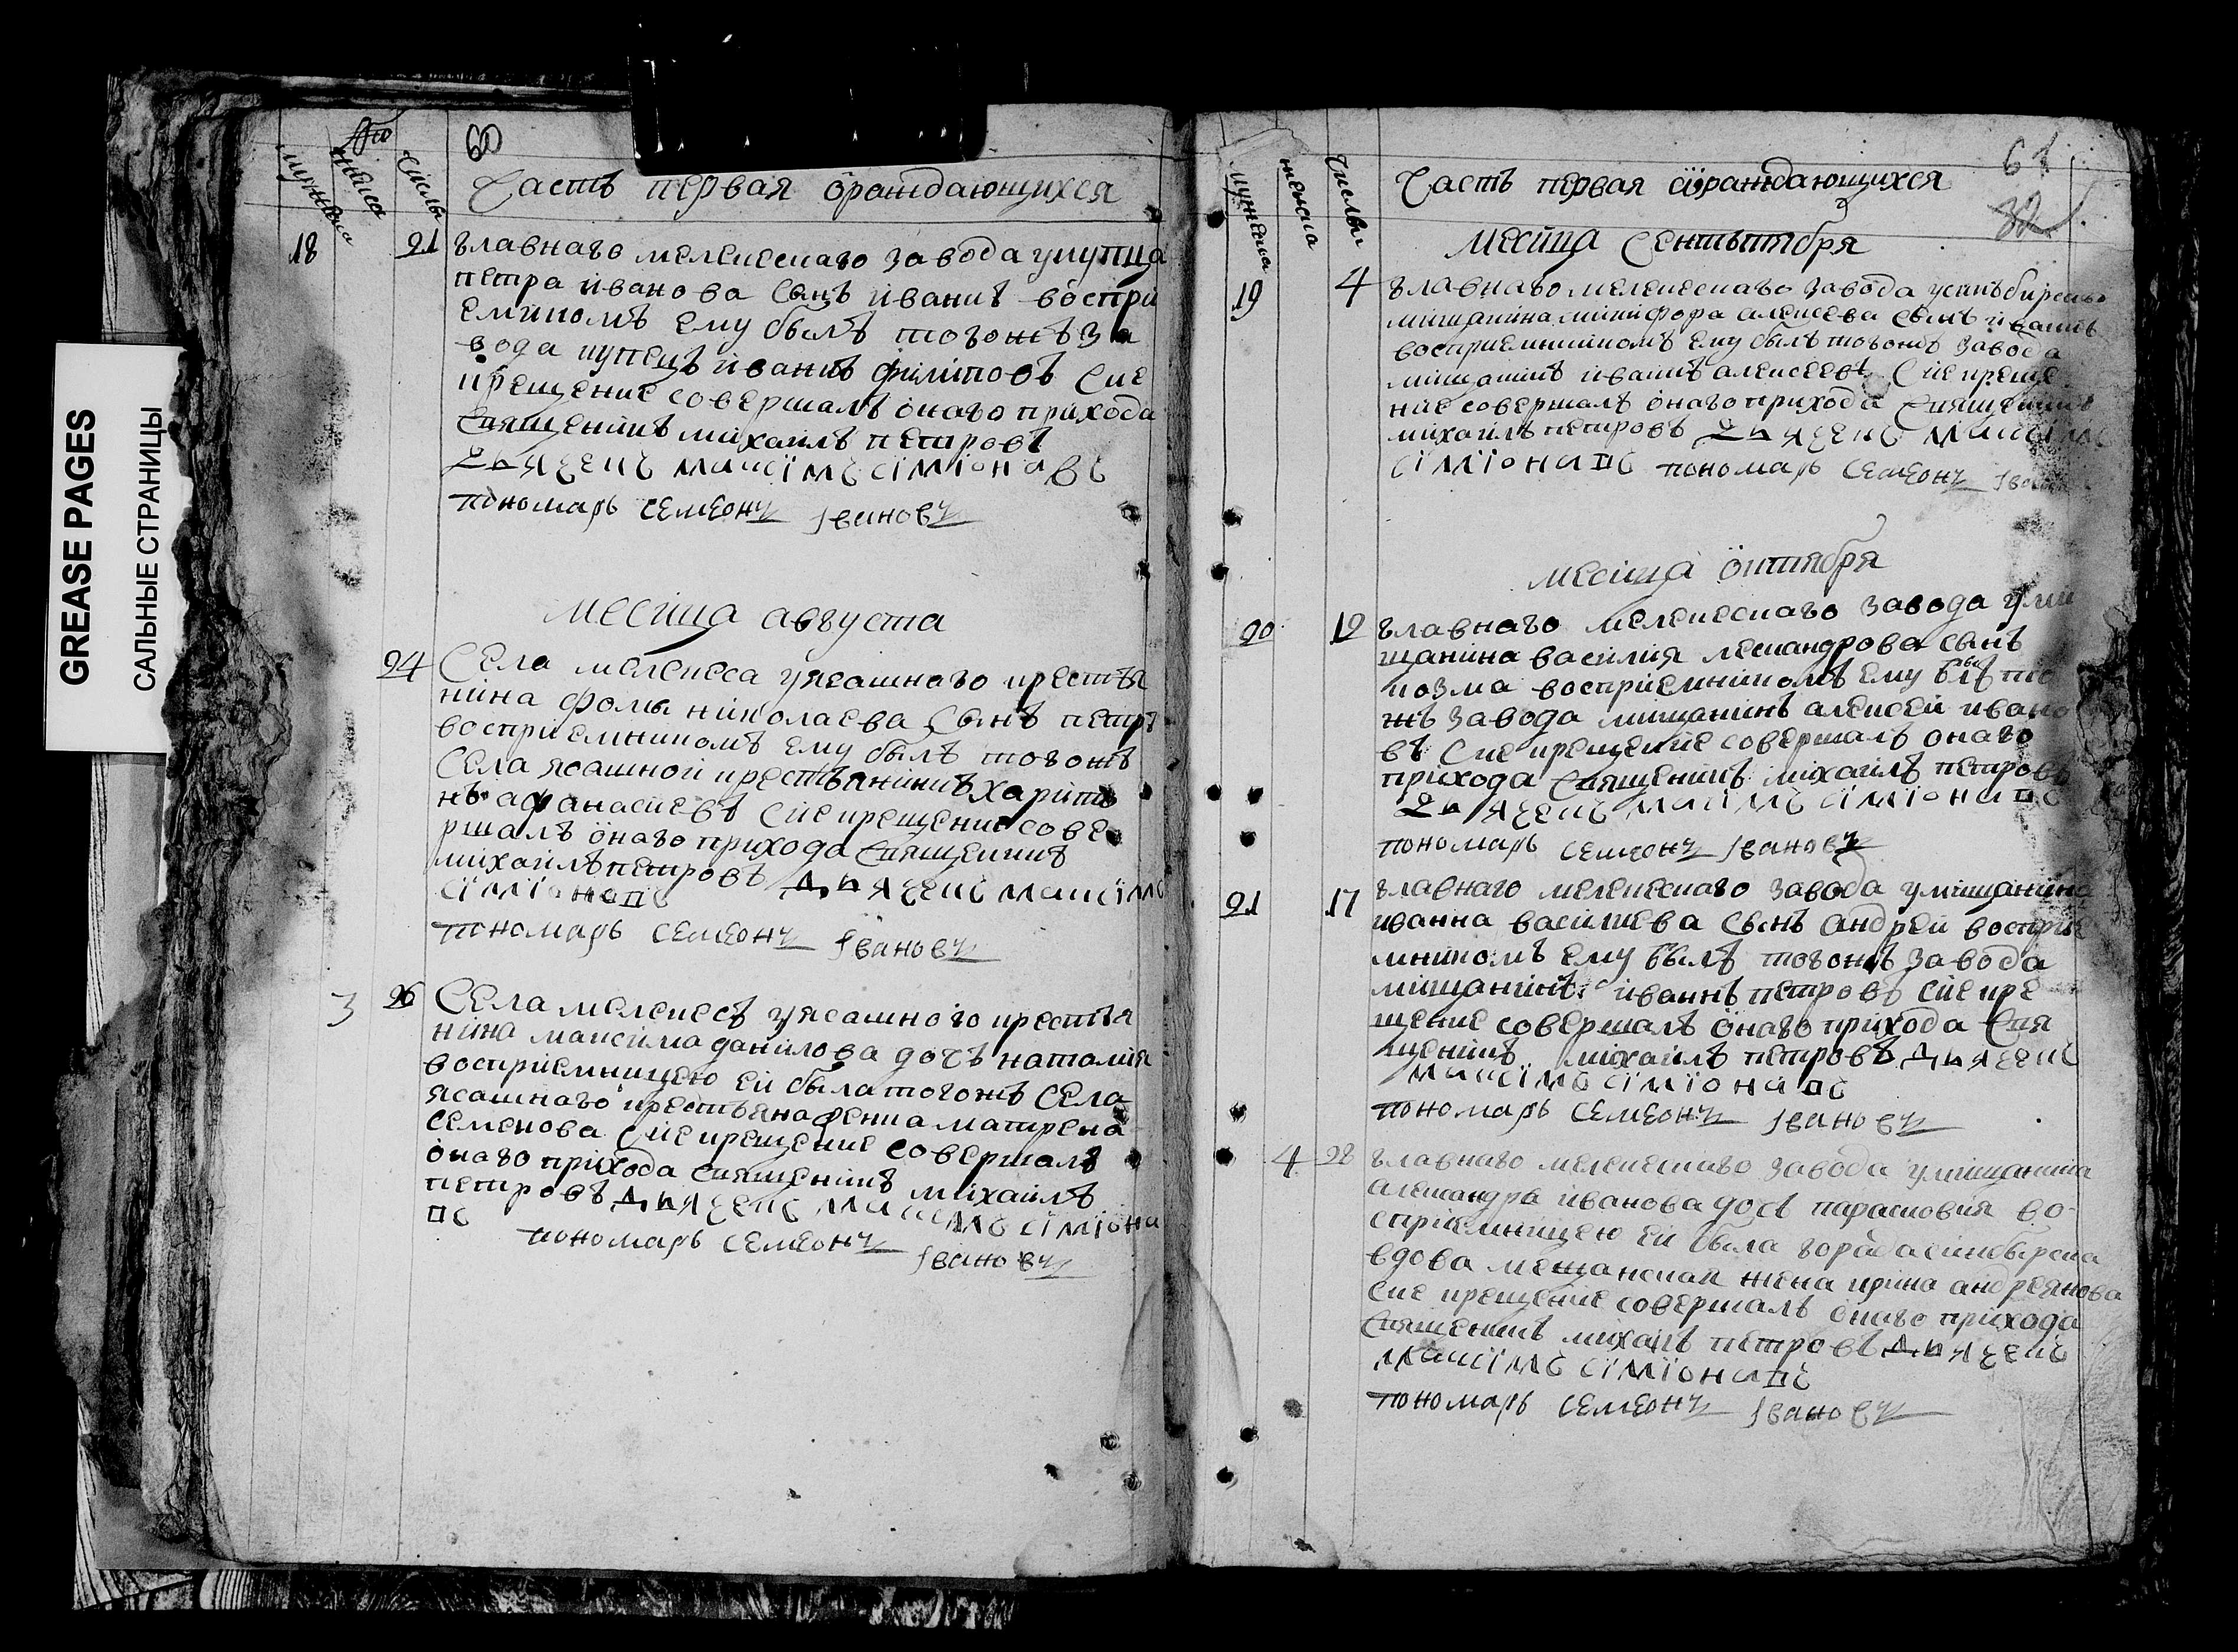 GREASE PAGES
САЛЬНЫЕ СТРАНИЦЫ
60
мужеска
женска
числы
Часть первая ораждающихся
18 21 главнаго мелекескаго завода укупца
петра иванова сынъ иванъ воспри
емникомъ ему былъ тогожъ за
вода купецъ иванъ филиповъ сие
крещение совершалъ онаго прихода
священникъ михаилъ петровъ
дьячекъ максимъ симионавъ
пономарь семеонъ Iвановъ
месяца августа
24 Села мелекеса уясашнаго крестья
нина фомы николаева сынъ петръ
восприемникомъ ему былъ тогожъ
села ясашной крестьянинъ харито
нъ афанасиевъ сие крещение сове
ршалъ онаго прихода священникъ
михаилъ петровъ дьячекъ максимъ
симионавъ
пономарь семеонъ Iвановъ
3 26 Села мелекесъ уясашного крестья
нина максима данилова дочъ наталия
восприемницею ей была тогожъ села
ясашнаго крестьяна женка матрена
семенова сие крещение совершалъ
онаго прихода священникъ михаилъ
петровъ дьячекъ максимъ симиона
въ пономарь семеонъ
Iвановъ
61
32
мужеска
женска
числы
Часть первая оражdающихся
месяца сентьптября
19 4 главнаго мелекескаго завода усинъбирскаго
мищанина никифора алексева сынъ иванъ
восприемникомъ ему былъ тогожъ завода
мищанинъ иванъ алексеевъ сие креще
ние совершалъ онаго прихода священникъ
михаилъ петровъ дьячекъ максимъ
симионавъ пономарь семеонъ Iвановъ
месяца октября
20 12 главнаго мелекескаго завода уми
щанина василия лександрова сынъ
козма восприемникомъ ему былъ того
жъ завода мищанинъ алексей ивано
въ сие крещение совершалъ онаго
прихода священникъ михаилъ петровъ
дьячекъ максимъ симионавъ
пономарь семеонъ Iвановъ
21 17 главнаго мелекескаго завода умищанина
иванна василиева сынъ андреи восприе
мникомъ ему былъ тогожъ завода
мищанинъ иваннъ петровъ сие кре
щение совершалъ онаго прихода свя
щенникъ михаилъ петровъ дьячекъ
максимъ симионавъ
пономарь семеонъ Iвановъ
4 28 главнаго мелекескаго завода умищанина
александра иванова дочъ парасковия во
сприемницею ей была города синбирска
вдова мещанская жена ирина андреянова
сие крещение совершалъ онаго прихода
священникъ михаилъ петровъ дьячекъ
максимъ симионавъ
пономарь семеонъ Iвановъ